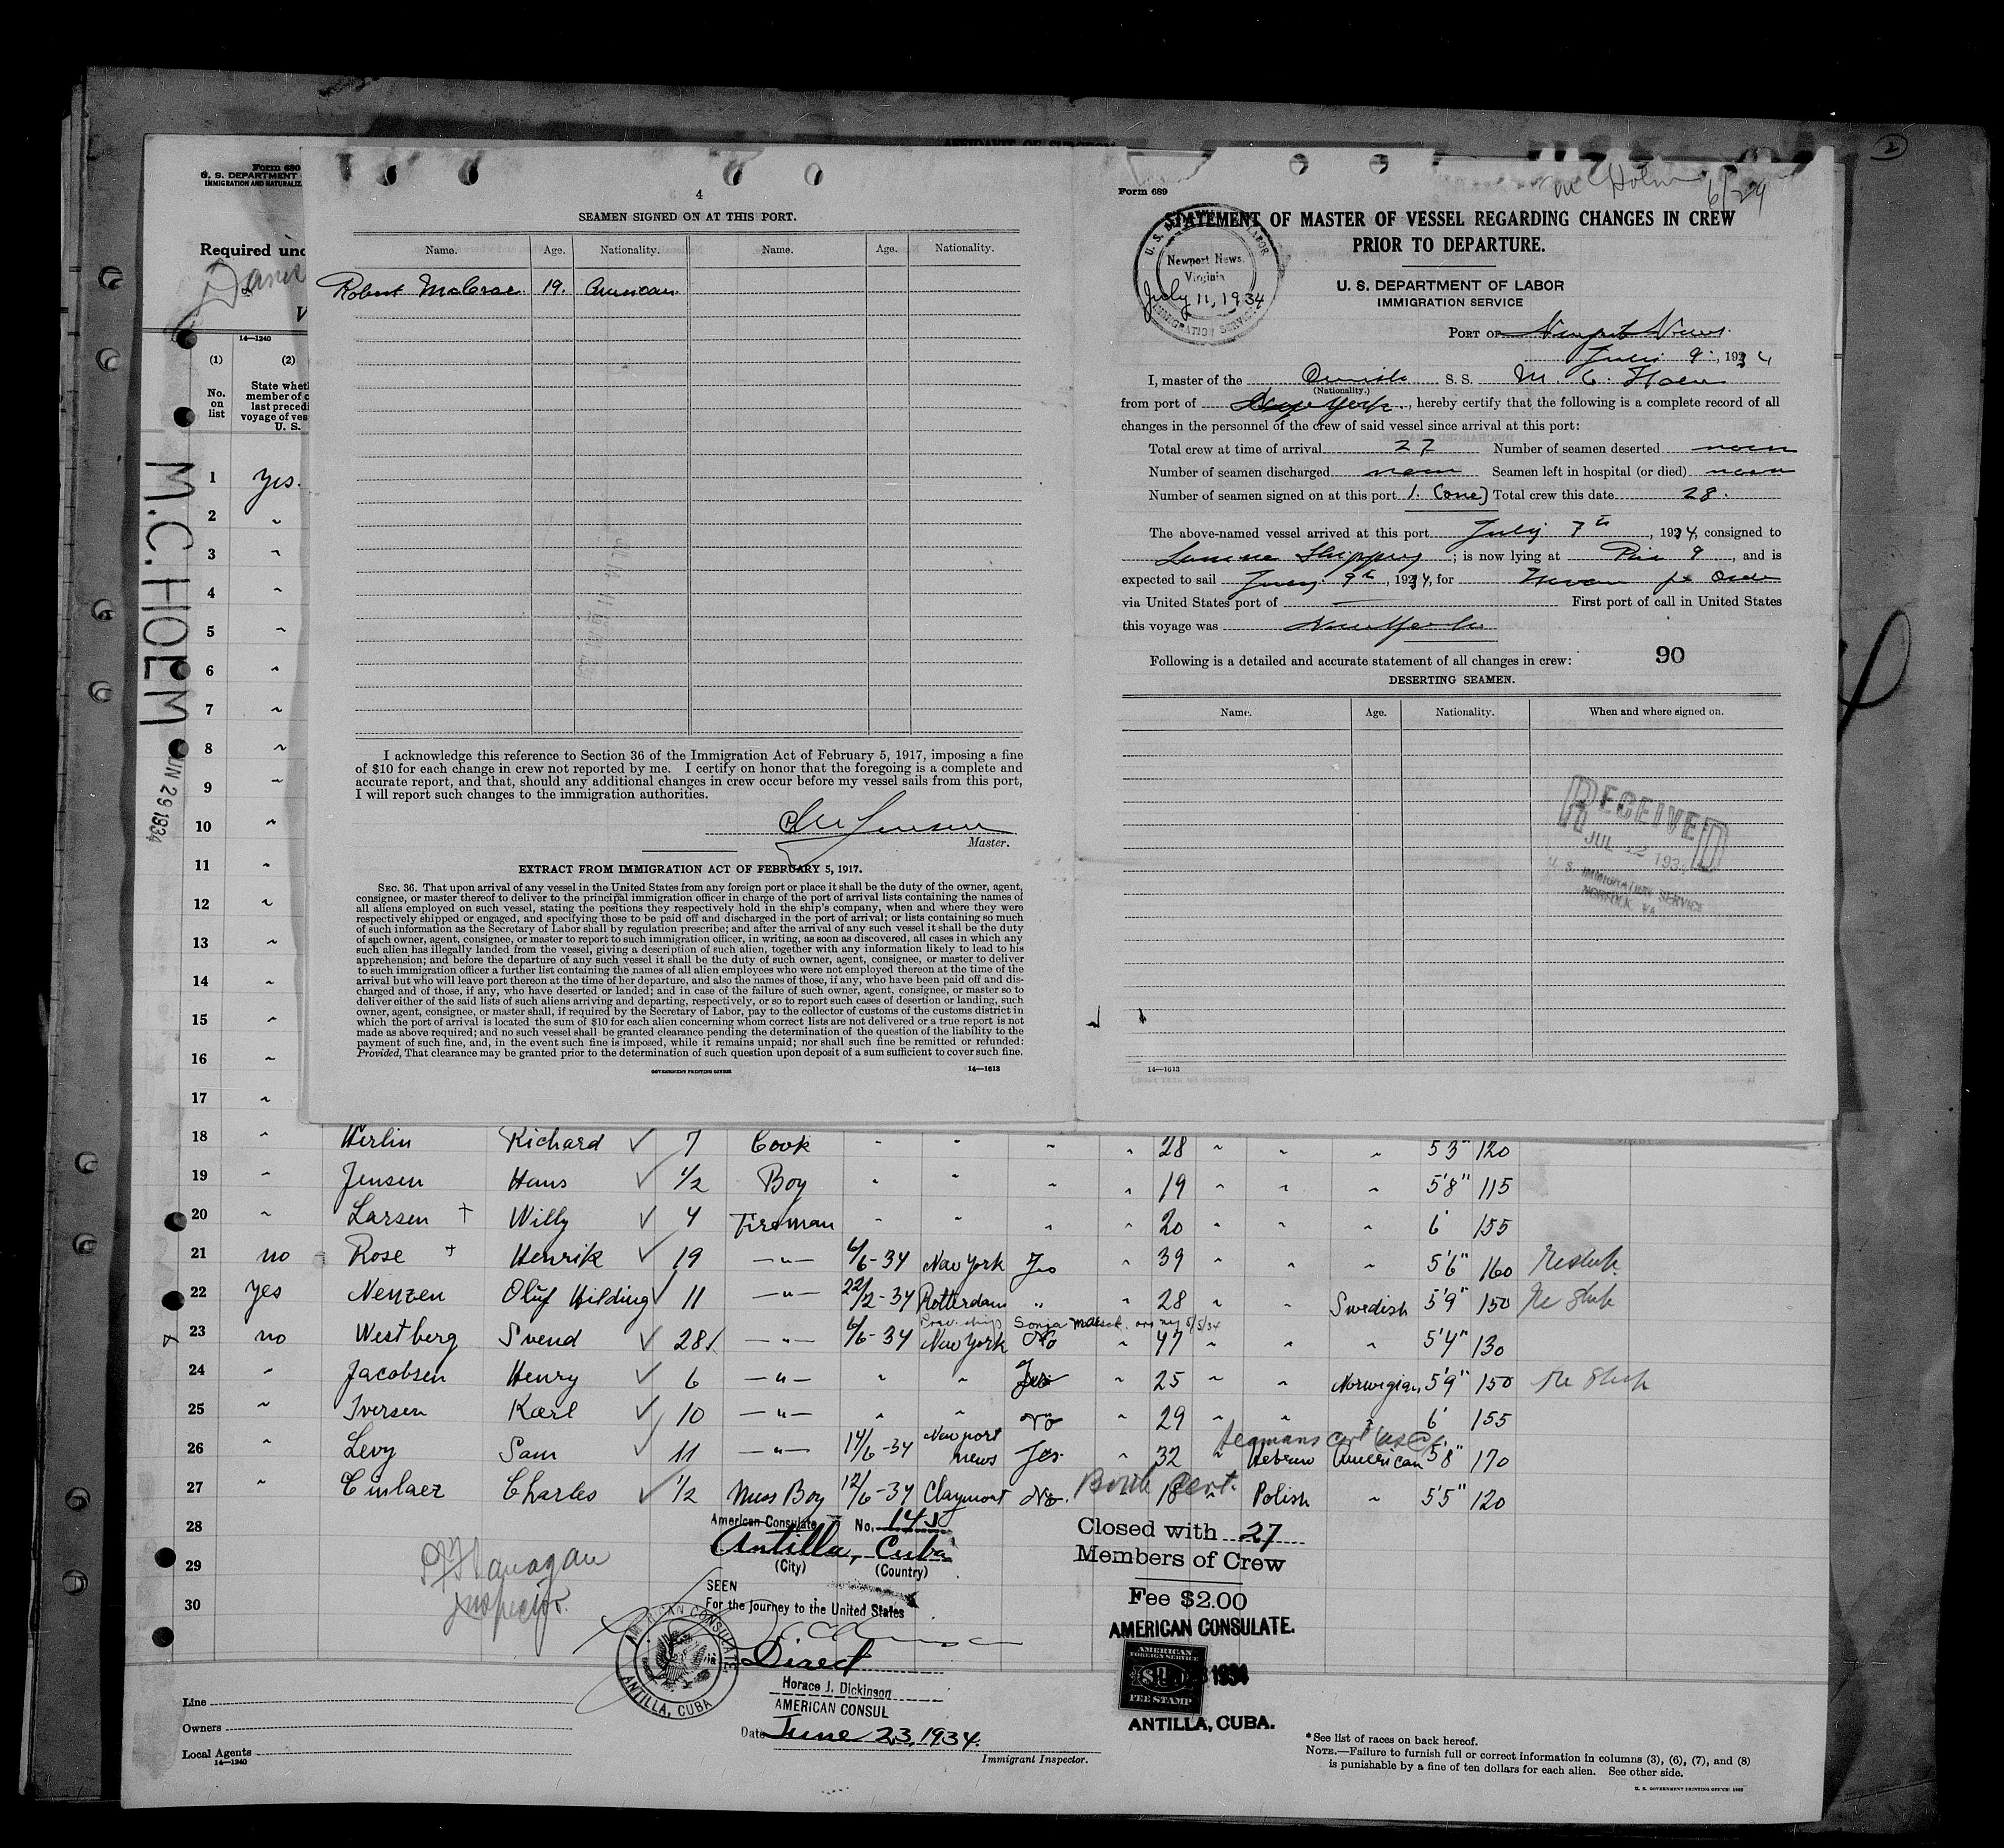 Form 680
U. S. DEPARTMENT
IMMIGRATION AND NATURALIZ
Required und
14—1240
(1) (2)
No. on list
State whet
member of c
last precedi
voyage of ves
U. S.
M.C. HOLM
JUN 29 1934
1 Yes.
2 "
3 "
4 "
5 "
6 "
7 "
8 "
9 "
10 "
11 "
12 "
13 "
14 "
15 "
16 "
17 "
4
SEAMEN SIGNED ON AT THIS PORT.
Name. Age. Nationality. Name. Age. Nationality.
Robert 19. American.
I acknowledge this reference to Section 36 of the Immigration Act of February 5, 1917, imposing a fine
of $10 for each change in crew not reported by me. I certify on honor that the foregoing is a complete and
accurate report, and that, should any additional changes in crew occur before my vessel sails from this port,
I will report such changes to the immigration authorities.
Master.
EXTRACT FROM IMMIGRATION ACT OF FEBRUARY 5, 1917.
SEC. 36. That upon arrival of any vessel in the United States from any foreign port or place it shall be the duty of the owner, agent,
consignee, or master thereof to deliver to the principal immigration officer in charge of the port of arrival lists containing the names of
all aliens employed on such vessel, stating the positions they respectively hold in the ship's company, when and where they were
respectively shipped or engaged, and specifying those to be paid off and discharged in the port of arrival; or lists containing so much
of such information as the Secretary of Labor shall by regulation prescribe; and after the arrival of any such vessel it shall be the duty
of such owner, agent, consignee, or master to report to such immigration officer, in writing, as soon as discovered, all cases in which any
such alien has illegally landed from the vessel, giving a description of such alien, together with any information likely to lead to his
apprehension; and before the departure of any such vessel it shall be the duty of such owner, agent, consignee, or master to deliver
to such immigration officer a further list containing the names of all alien employees who were not employed thereon at the time of the
arrival but who will leave port thereon at the time of her departure, and also the names of those, if any, who have been paid off and dis-
charged and of those, if any, who have deserted or landed; and in case of the failure of such owner, agent, consignee, or master so to
deliver either of the said lists of such aliens arriving and departing, respectively, or so to report such cases of desertion or landing, such
owner, agent, consignee, or master shall, if required by the Secretary of Labor, pay to the collector of customs of the customs district in
which the port of arrival is located the sum of $10 for each alien concerning whom correct lists are not delivered or a true report is not
made as above required; and no such vessel shall be granted clearance pending the determination of the question of the liability to the
payment of such fine, and, in the event such fine is imposed, while it remains unpaid; nor shall such fine be remitted or refunded:
Provided, That clearance may be granted prior to the determination of such question upon deposit of a sum sufficient to cover such fine.
GOVERNMENT PRINTING OFFICE 14—1613
2
Form 689
M C Holm 6/29
STATEMENT OF MASTER OF VESSEL REGARDING CHANGES IN CREW
PRIOR TO DEPARTURE.
U. S. DEPARTMENT OF LABOR
IMMIGRATION SERVICE
Newport News,
Virginia
July 11, 1934
PORT OF Newport News.
July 9, 1934
I, master of the Danish S. S. M. C. Holm
(Nationality.)
from port of New York, hereby certify that the following is a complete record of all
changes in the personnel of the crew of said vessel since arrival at this port:
Total crew at time of arrival 27 Number of seamen deserted none
Number of seamen discharged none Seamen left in hospital (or died) none
Number of seamen signed on at this port 1. (one) Total crew this date 28.
The above-named vessel arrived at this port July 7th, 1934, consigned to
Shipping; is now lying at Pier 9, and is
expected to sail July 9th, 1934, for
via United States port of — First port of call in United States
this voyage was New York
Following is a detailed and accurate statement of all changes in crew: 90
DESERTING SEAMEN.
Name. Age. Nationality. When and where signed on.
RECEIVED
JUL 12 1934
U. S. IMMIGRATION SERVICE
NORFOLK, VA
14—1613
18 " Herlin Richard ✓ 7 Cook " " " " 28 " " " 5'3" 120
19 " Jensen Hans ✓ 1/2 Boy " " " " 19 " " " 5'8" 115
20 " Larsen + Willy ✓ 4 Fireman " " " " 20 " " " 6' 155
21 no Rose + Henrik ✓ 19 —"— 6/6-34 New York Yes " 39 " " " 5'6" 160 Reship.
22 yes Nenzen Oluf Hilding ✓ 11 —"— 22/2-34 Rotterdam " " 28 " " Swedish 5'9" 150 Re Ship
Prev. ship Sonja Maersk arr ny 5/5/34
23 no Westberg Svend ✓ 28 —"— 6/6-34 New York No " 47 " " " 5'4" 130
24 " Jacobsen Henry ✓ 6 —"— " " Yes " 25 " " Norwegian 5'9" 150 Re Ship
25 " Iversen Karl ✓ 10 —"— " " No " 29 " " " 6' 155
Seamans cert
26 " Levy Sam ✓ 11 —"— 14/6-34 Newport News Yes. " 32 " Hebrew American 5'8" 170
Birth Cert.
27 " Charles ✓ 1/2 Mess Boy 12/6-34 Claymont No. 18 " Polish " 5'5" 120
28
29
30
Flanagan
Inspector.
American Consulate No. 145
Antilla, Cuba
(City) (Country)
SEEN
For the journey to the United States
Direct
AMERICAN CONSULATE
ANTILLA, CUBA
Horace J. Dickinson
AMERICAN CONSUL
Date June 23, 1934.
Immigrant Inspector.
Closed with 27
Members of Crew
Fee $2.00
AMERICAN CONSULATE.
AMERICAN
FOREIGN SERVICE
FEE STAMP
1934
ANTILLA, CUBA.
Line
Owners
Local Agents
14—1240
*See list of races on back hereof.
NOTE.—Failure to furnish full or correct information in columns (3), (6), (7), and (8)
is punishable by a fine of ten dollars for each alien. See other side.
U. S. GOVERNMENT PRINTING OFFICE: 1933